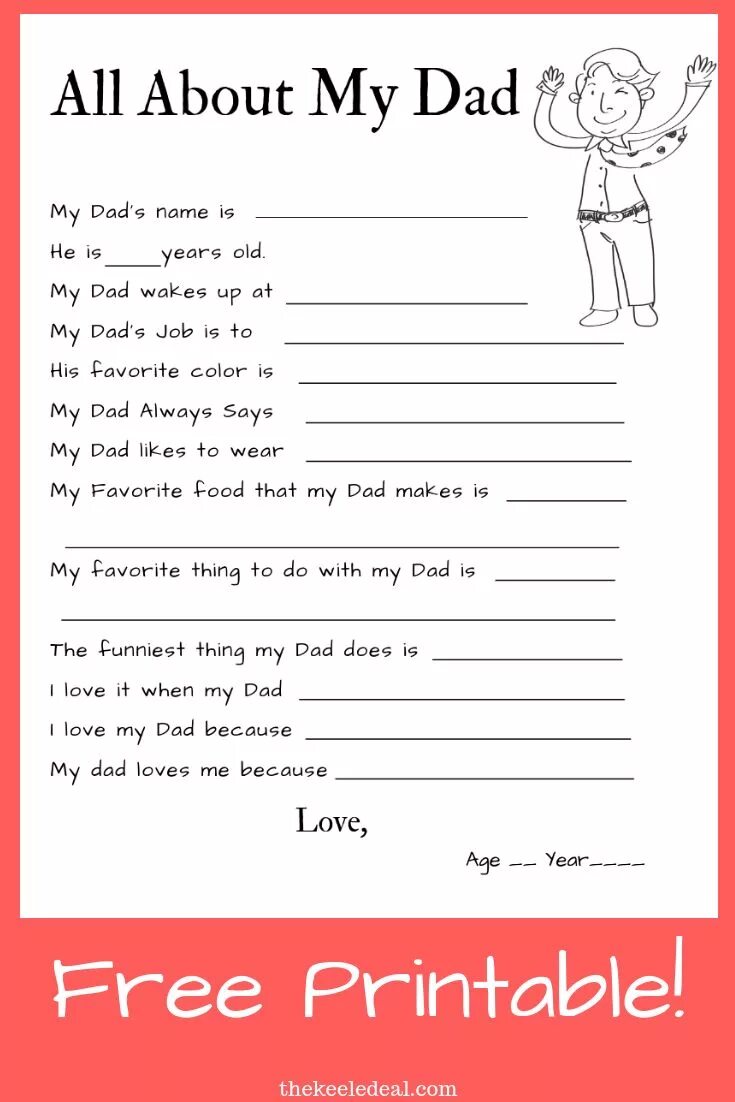 All About My Dad
My Dad's name is ____________________
He is_____years old.
My Dad wakes up at ____________________
My Dad's Job is to ____________________
His favorite color is ____________________
My Dad Always Says ____________________
My Dad likes to wear ____________________
My Favorite food that my Dad makes is __________
____________________
My favorite thing to do with my Dad is __________
____________________
The funniest thing my Dad does is ____________________
I love it when my Dad ____________________
I love my Dad because ____________________
My dad loves me because____________________
Love,
Age __ Year____
Free Printable!
thekeeledeal.com